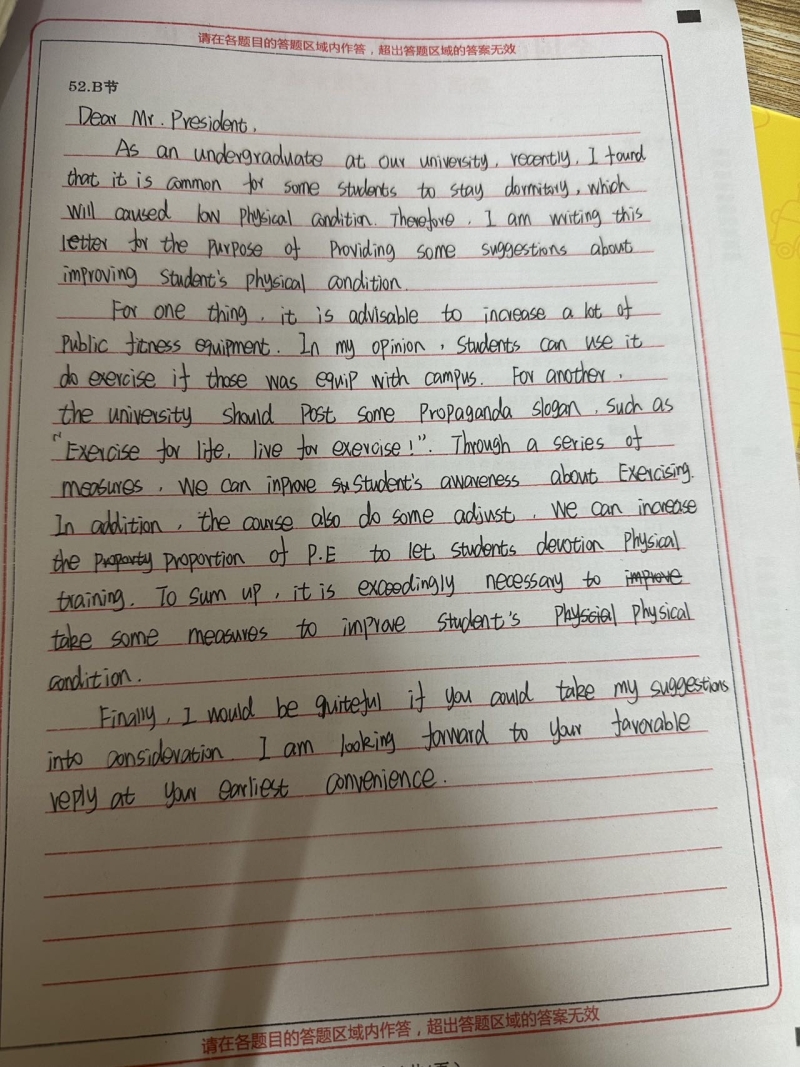 请在各题目的答题区域内作答，超出答题区域的答案无效
52.B节
Dear Mr. President,
As an undergraduate at our university, recently, I found
that it is common for some students to stay dormitary, which
will caused low physical condition. Therefore, I am writing this
letter for the purpose of providing some suggestions about
improving student's physical condition.
For one thing, it is advisable to increase a lot of
public fitness equipment. In my opinion, students can use it
do exercise if those was equip with campus. For another,
the university should post some propaganda slogan, such as
"Exercise for life, live for exercise!". Through a series of
measures, we can inprove student's awareness about Exercising.
In addition, the course also do some adjust, we can increase
the proporty proportion of P.E to let students devotion physical
training. To sum up, it is exceedingly necessary to improve
take some measures to improve student's physcial physical
condition.
Finally, I would be quiteful if you could take my suggestions
into consideration. I am looking forward to your favorable
reply at your earliest convenience.
请在各题目的答题区域内作答，超出答题区域的答案无效